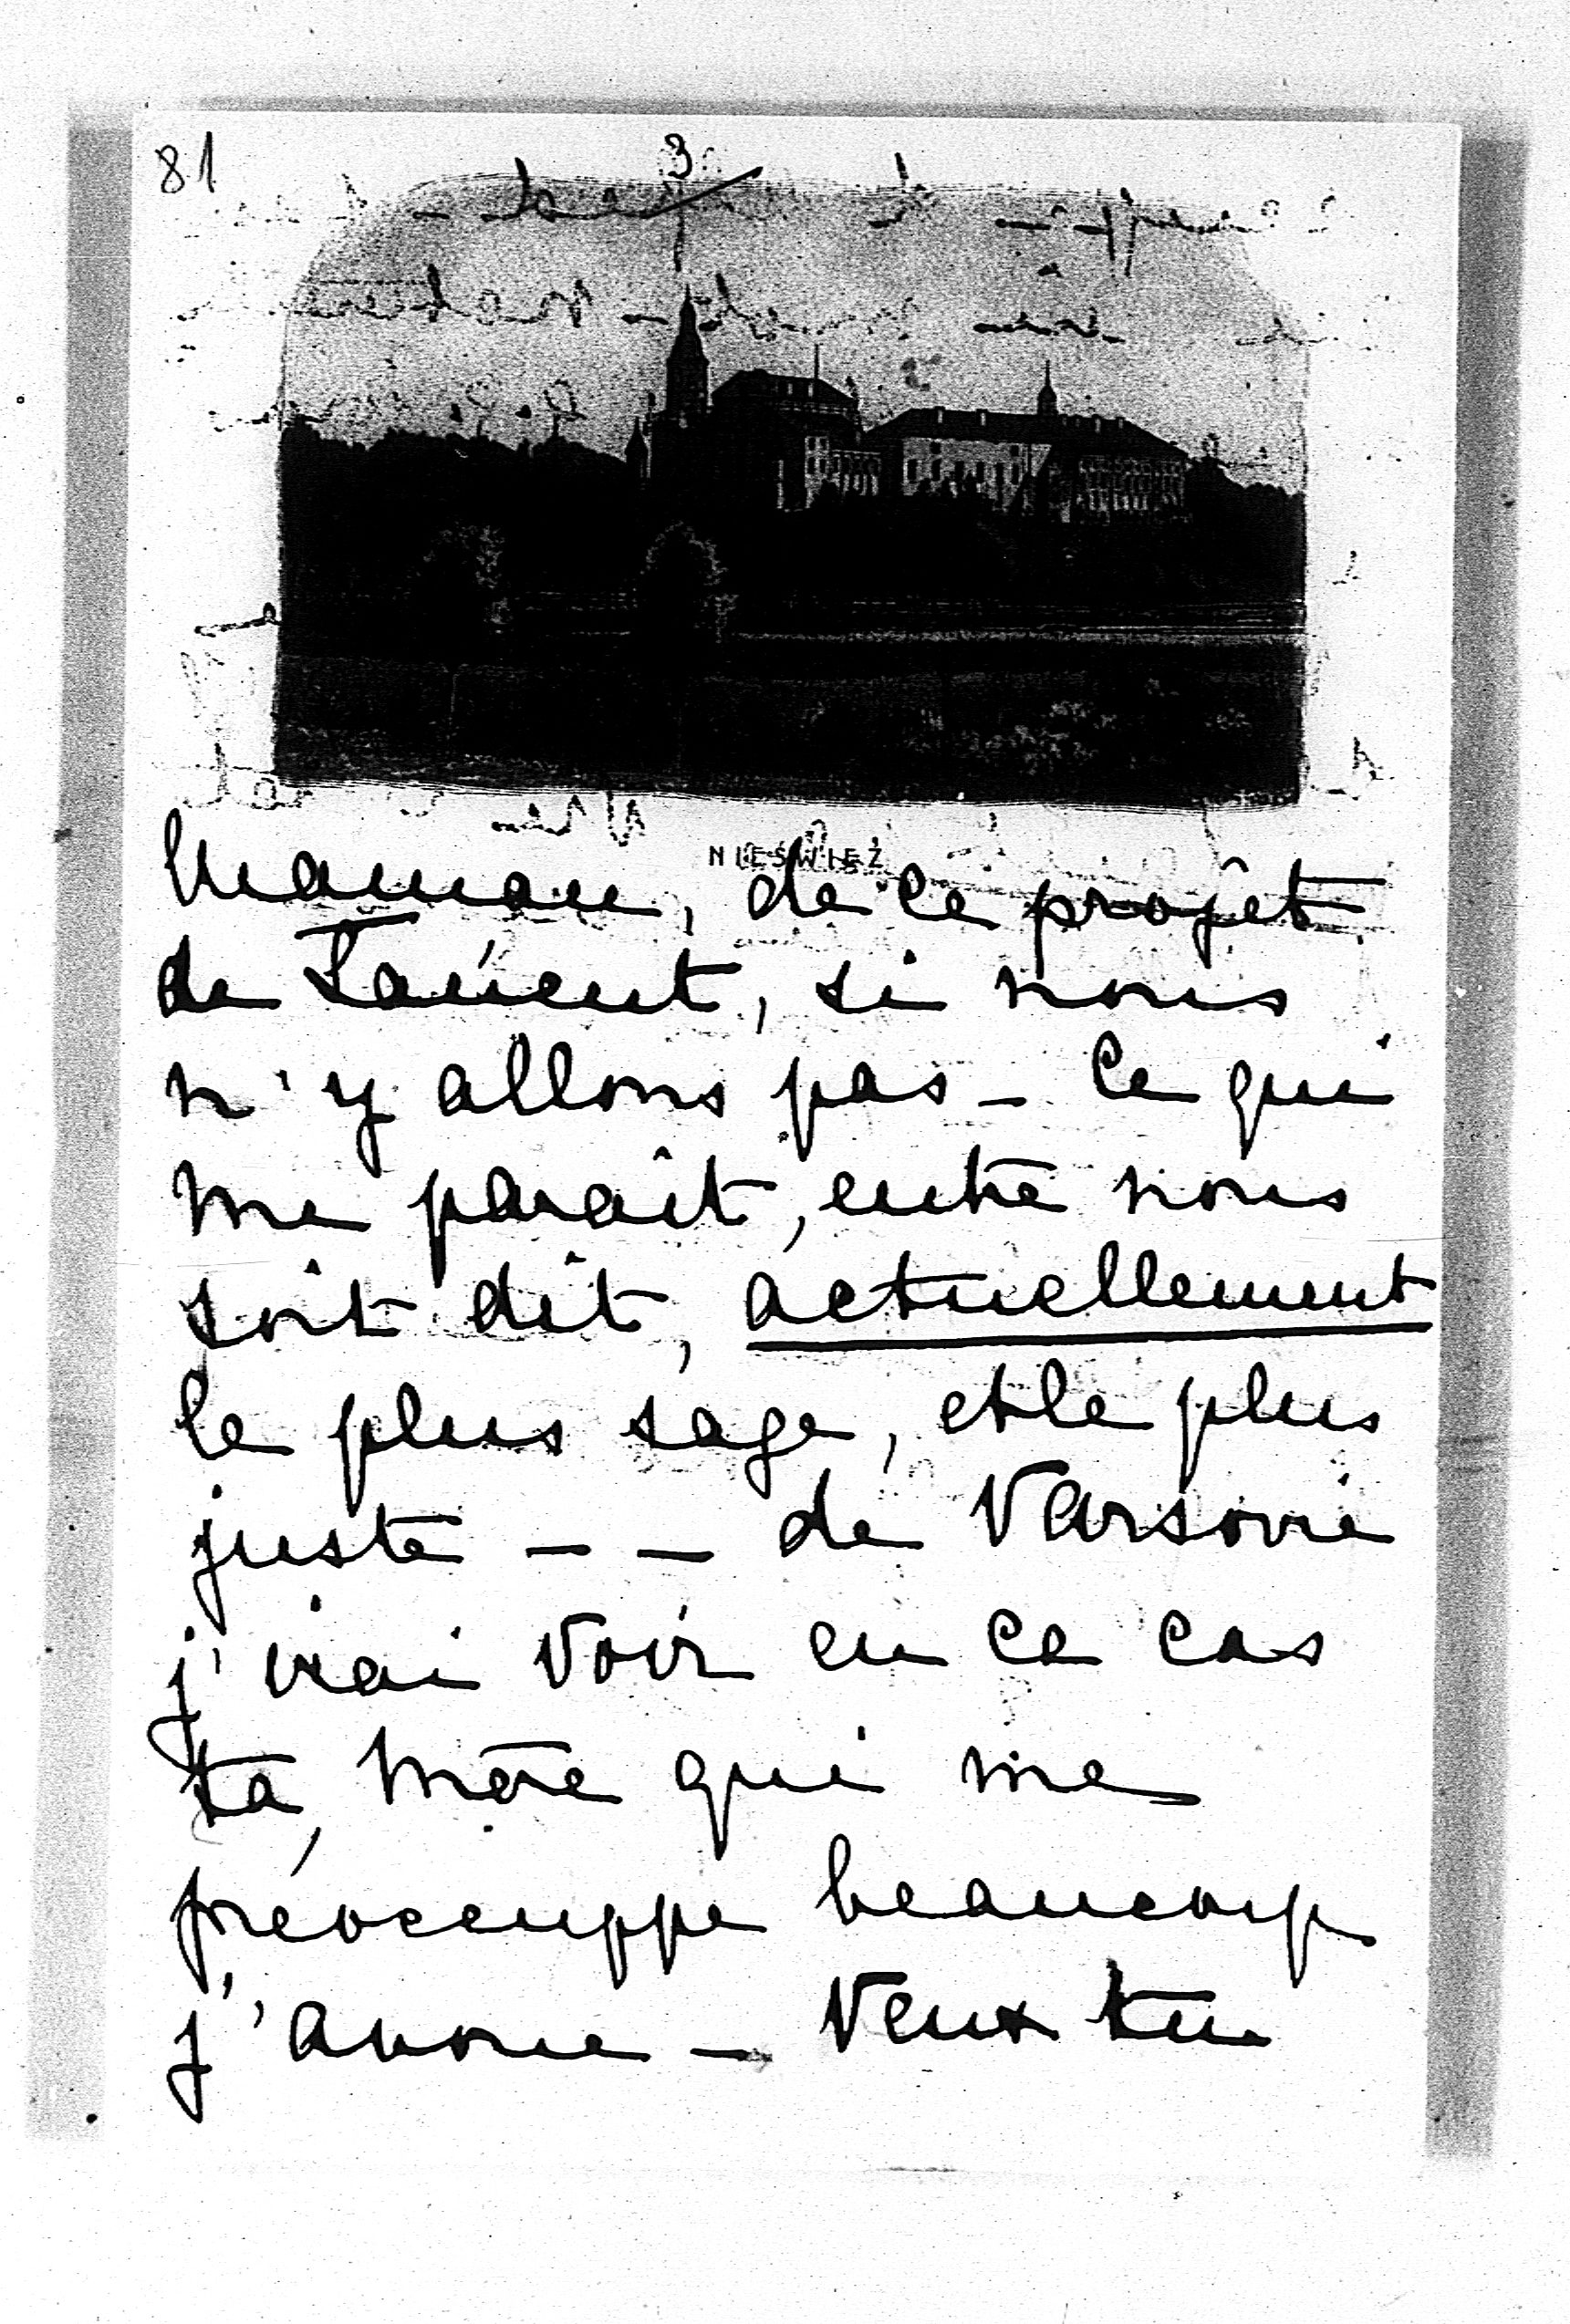 81
3
NIEŚWIEŻ
Maman, de ce projèt
de Łańcut, si nous
n'y allons pas – ce qui
me parait, entre nous
soit dit, actuellement
le plus sage, et le plus
juste – – de Varsovie
j'irai voir en ce cas
ta mère qui me
préoccuppe beaucoup
j'avoue – Veux tu